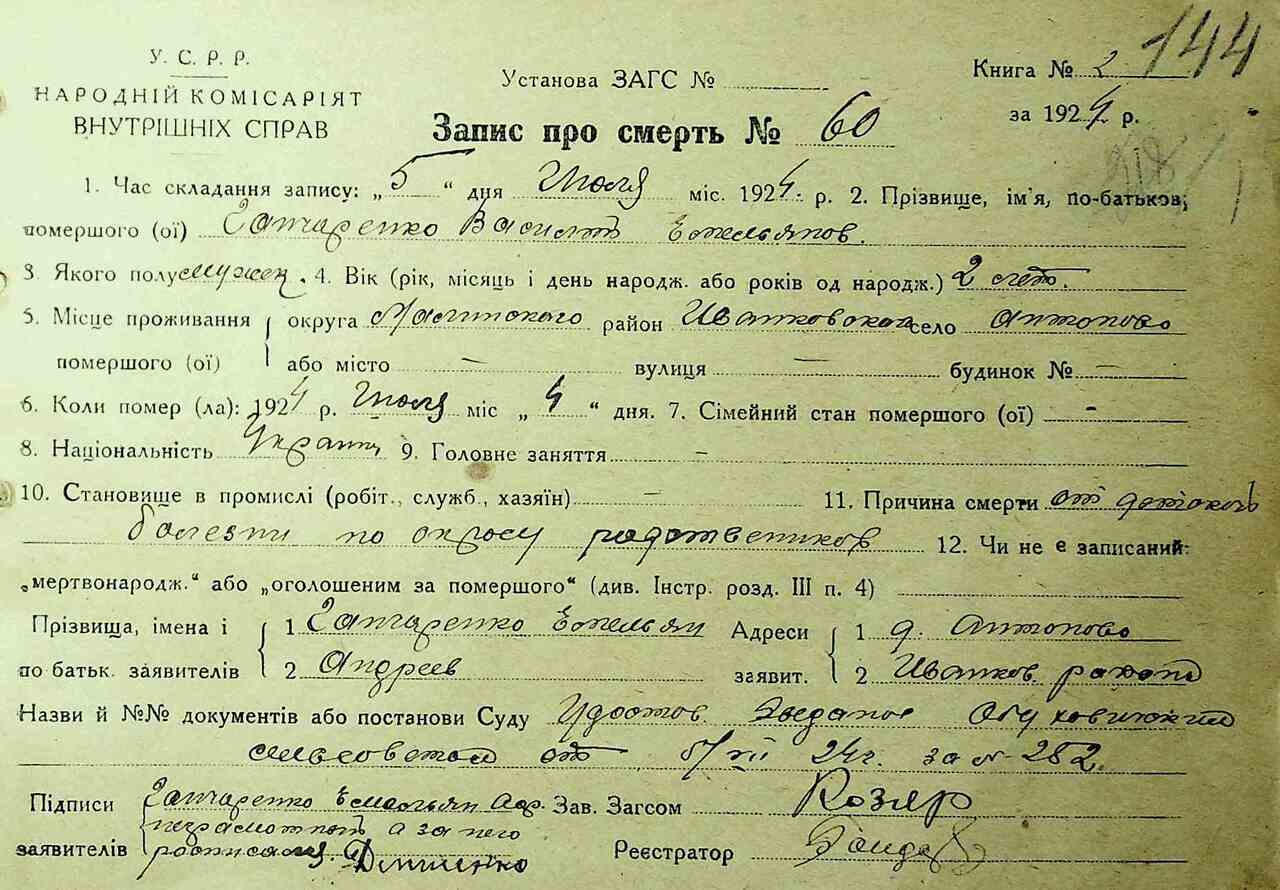 144
У. С. Р. Р.
НАРОДНІЙ КОМІСАРІЯТ
ВНУТРІШНІХ СПРАВ
Установа ЗАГС №
Книга № 2
за 1924 р.
Запис про смерть № 60
1. Час складання запису: „5“ дня Июля міс. 1924 р. 2. Прізвище, ім'я, по-батьков,
помершого (ої) Ганчаренко Василь Емельянов.
3. Якого полу мужск. 4. Вік (рік, місяць і день народж. або років од народж.) 2 лет.
5. Місце проживання округа Малинского район Иванковского село Антоново
помершого (ої) або місто — вулиця — будинок № —
6. Коли помер (ла): 1924 р. Июля міс „4“ дня. 7. Сімейний стан помершого (ої) -
8. Національність Украин 9. Головне заняття -
10. Становище в промислі (робіт., служб., хазяїн) — 11. Причина смерти от детской
болезни по опросу родствеников 12. Чи не є записаний:
„мертвонародж.“ або „оголошеним за помершого“ (див. Інстр. розд. III п. 4)
Прізвища, імена і 1 Ганчаренко Емельян Адреси 1 д. Антоново
по батьк. заявителів 2 Андреев заявит. 2 Иванков. района
Назви й №№ документів або постанови Суду Удостов. Обуховицким
сельсоветом от 5/VII 24 г. за № 252.
Підписи Ганчаренко Емельян Зав. Загсом Козяр
неграмотный а за него
заявителів росписался Демиенко Реєстратор